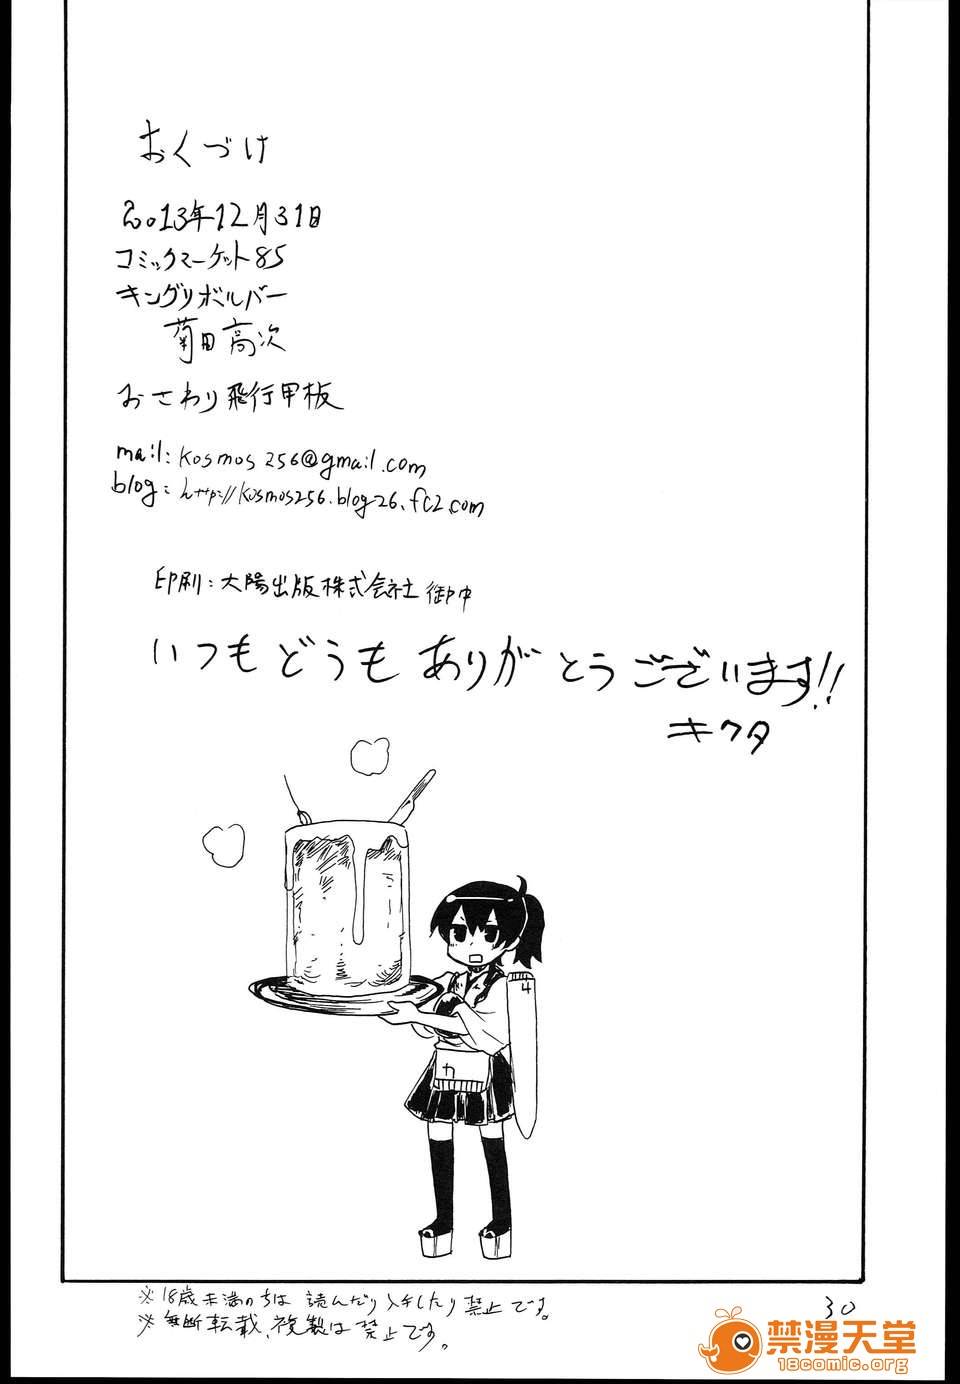 おくづけ
2013年12月31日
コミックマーケット85
キングリボルバー
菊田高次
おさわり飛行甲板
mail: kosmos256@gmail.com
blog: http://kosmos256.blog26.fc2.com
印刷: 大陽出版株式会社 御中
いつもどうもありがとうございます!!
キクタ
4
カ
※18歳未満のちは 読んだり入手したり禁止です。
※無断転載、複製は禁止です。
30
禁漫天堂
18comic.org